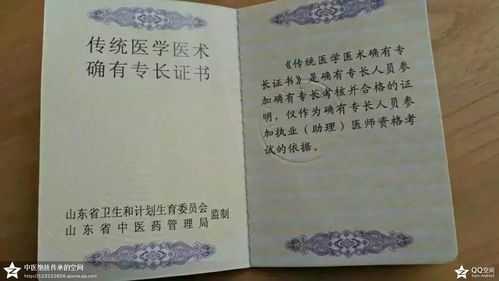 传统医学医术
确有专长证书
山东省卫生和计划生育委员会
山东省中医药管理局
监制
《传统医学医术确有专
长证书》是确有专长人员参
加确有专长考核并合格的证
明，仅作为确有专长人员参
加执业（助理）医师资格考
试的依据。
QQ空间